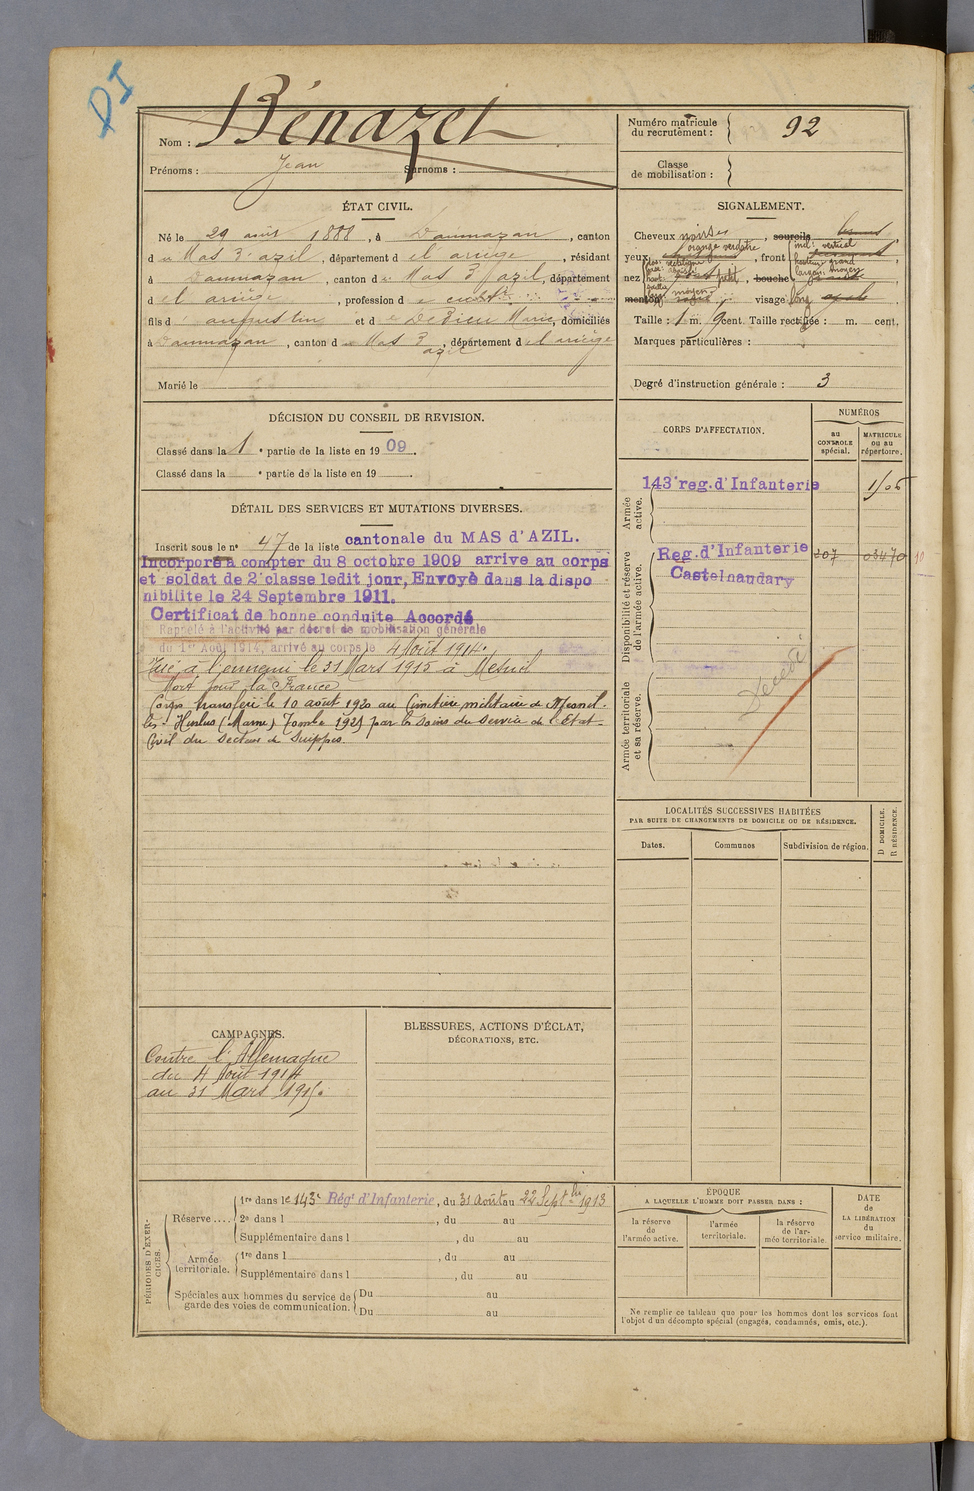 DI
Nom : Bénazet
Prénoms : Jean Surnoms :
Numéro matricule du recrutement : 92
Classe de mobilisation :
ÉTAT CIVIL.
Né le 29 août 1888, à Daumazan, canton
du Mas d'azil, département de l'ariège, résidant
à Daumazan, canton du Mas d'azil, département
de l'ariège, profession d
fils d'augustin et de Dedieu Marie, domiciliés
à Daumazan, canton du Mas d'azil, département de l'ariège
Marié le
SIGNALEMENT.
Cheveux noirs, sourcils bruns
yeux orangé verdâtre, front incl: vertical
hauteur grand
largeur: moyen
nez petit, bouche
menton, visage long
Taille : 1 m. cent. Taille rectifiée : m. cent.
Marques particulières :
Degré d'instruction générale : 3
DÉCISION DU CONSEIL DE REVISION.
Classé dans la 1e partie de la liste en 1909.
Classé dans la e partie de la liste en 19
CORPS D'AFFECTATION.
NUMÉROS
au CONTROLE spécial.
MATRICULE ou au répertoire.
Armée active.
143e reg. d'Infanterie
Disponibilité et réserve de l'armée active.
Reg. d'Infanterie 207 03470
Castelnaudary
Armée territoriale et sa réserve.
Décédé
DÉTAIL DES SERVICES ET MUTATIONS DIVERSES.
Inscrit sous le no 47 de la liste cantonale du MAS d'AZIL.
Incorporé à compter du 8 octobre 1909 arrive au corps
et soldat de 2e classe ledit jour, Envoyé dans la dispo
nibilite le 24 Septembre 1911.
Certificat de bonne conduite Accordé
Rappelé à l'activité par décret de mobilisation générale
du 1er Août 1914, arrivé au corps le 4 Août 1914.
Tué à l'ennemi le 31 Mars 1915 à Mesnil
Mort pour la France
Corps transféré le 10 août 1920 au Cimetière militaire de Mesnil-
lès-Hurlus (Marne) Tombe 1921 par les soins du Service de l'Etat-
Civil du Secteur de Suippes.
LOCALITÉS SUCCESSIVES HABITÉES
PAR SUITE DE CHANGEMENTS DE DOMICILE OU DE RÉSIDENCE.
Dates.
Communes
Subdivision de région.
D DOMICILE.
R RÉSIDENCE.
CAMPAGNES.
Contre l'Allemagne
du 4 Août 1914
au 31 Mars 1915.
BLESSURES, ACTIONS D'ÉCLAT,
DÉCORATIONS, ETC.
PÉRIODES D'EXERCICES.
Réserve ....
1re dans le 143e Régt d'Infanterie, du 31 Août au 22 Septbre 1913
2e dans l , du au
Supplémentaire dans l , du au
Armée territoriale.
1re dans l , du au
Supplémentaire dans l , du au
Spéciales aux hommes du service de garde des voies de communication.
Du au
Du au
ÉPOQUE
A LAQUELLE L'HOMME DOIT PASSER DANS :
la réserve de l'armée active.
l'armée territoriale.
la réserve de l'armée territoriale.
DATE de LA LIBÉRATION du service militaire.
Ne remplir ce tableau que pour les hommes dont les services font
l'objet d'un décompte spécial (engagés, condamnés, omis, etc.).